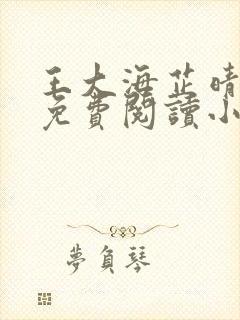 王大海芷晴
免費閱讀小
夢負琴